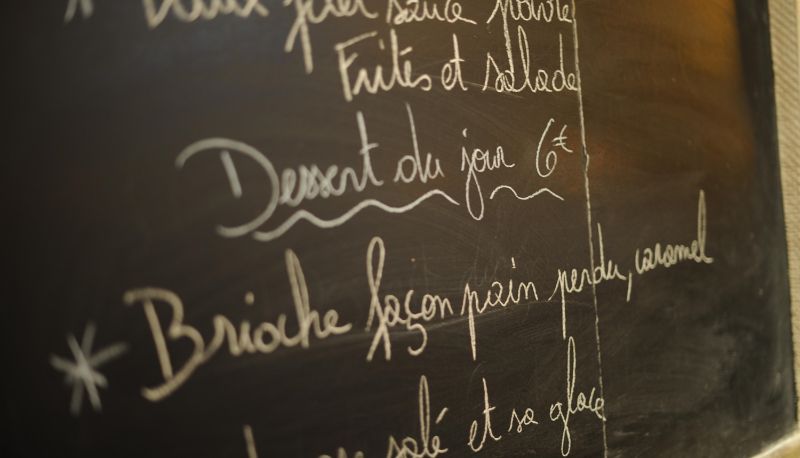 sauce poivre
Frites et salade
Dessert du jour 6€
* Brioche façon pain perdu, caramel
salé et sa glace